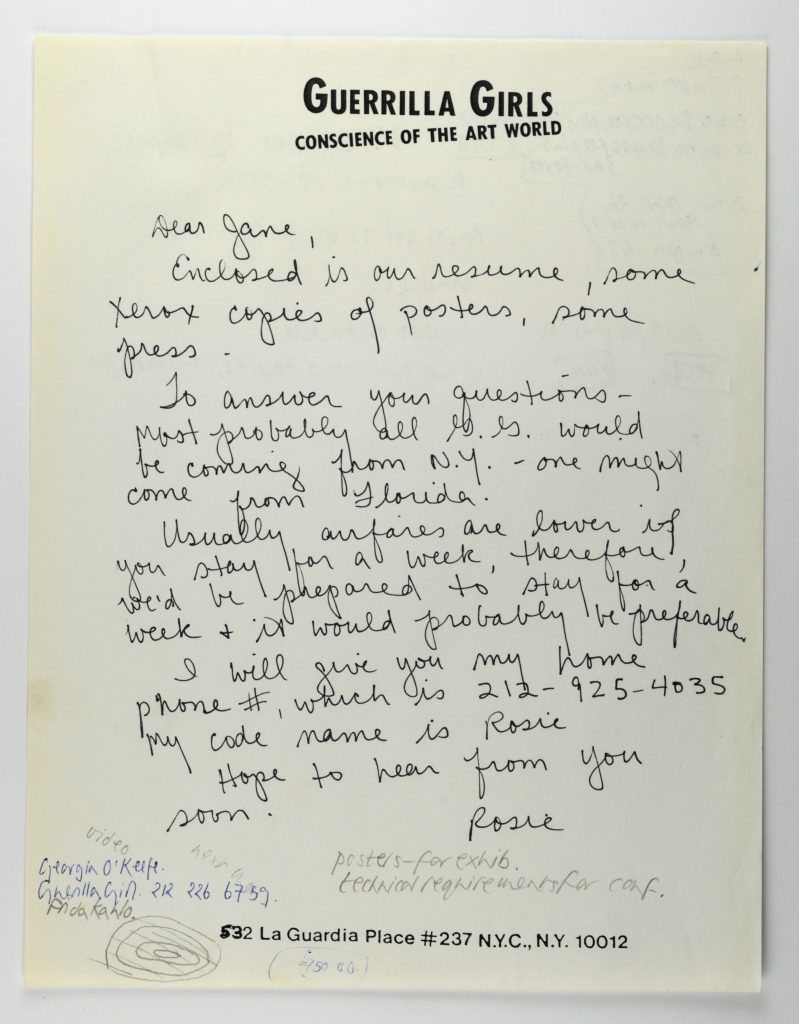 GUERRILLA GIRLS
CONSCIENCE OF THE ART WORLD
Dear Jane,
Enclosed is our resume, some
xerox copies of posters, some
press.
To answer your questions-
most probably all G.G. would
be coming from N.Y. - one might
come from Florida.
Usually airfares are lower if
you stay for a week, therefore,
we'd be prepared to stay for a
week + it would probably be preferable.
I will give you my home
phone #, which is 212-925-4035
My code name is Rosie
Hope to hear from you
soon.
Rosie
video
Georgia O'Keefe.
Guerilla Girl. 212 226 6759.
Frida Kahlo.
posters-for exhib.
technical requirements for conf.
532 La Guardia Place #237 N.Y.C., N.Y. 10012